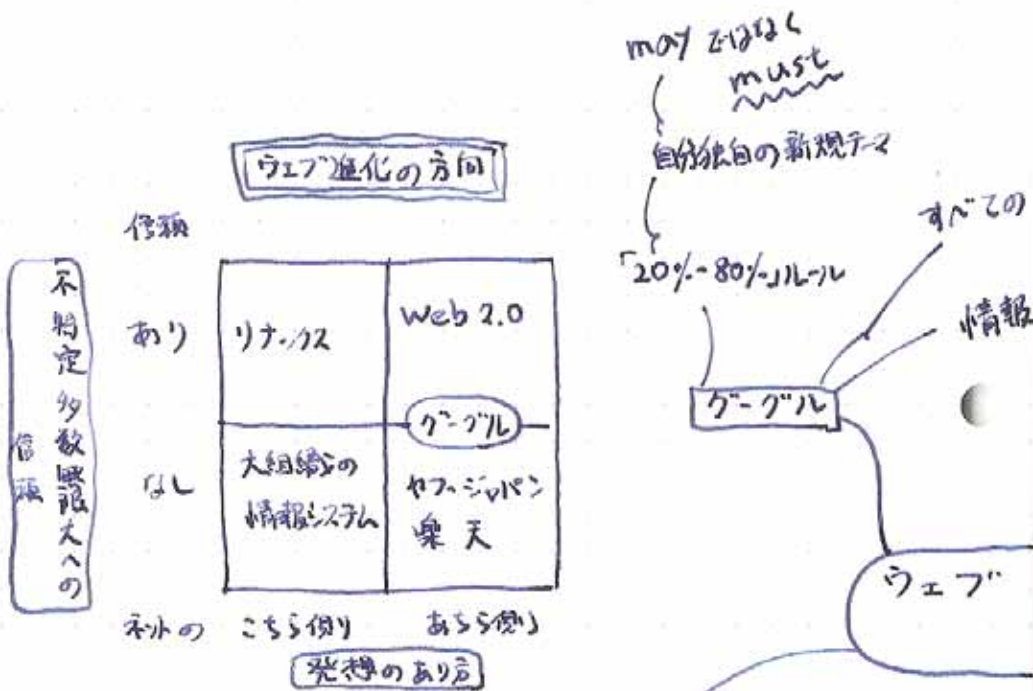 ウェブ進化の方向
信頼
不特定多数無限大への
信頼
あり
リナックス
Web 2.0
グーグル
なし
大組織の
情報システム
ヤフージャパン
楽天
ネットの こちら側 あちら側
発想のあり方
mayではなく
must
自分独自の新規テーマ
「20%-80%」ルール
すべての
情報
グーグル
ウェブ